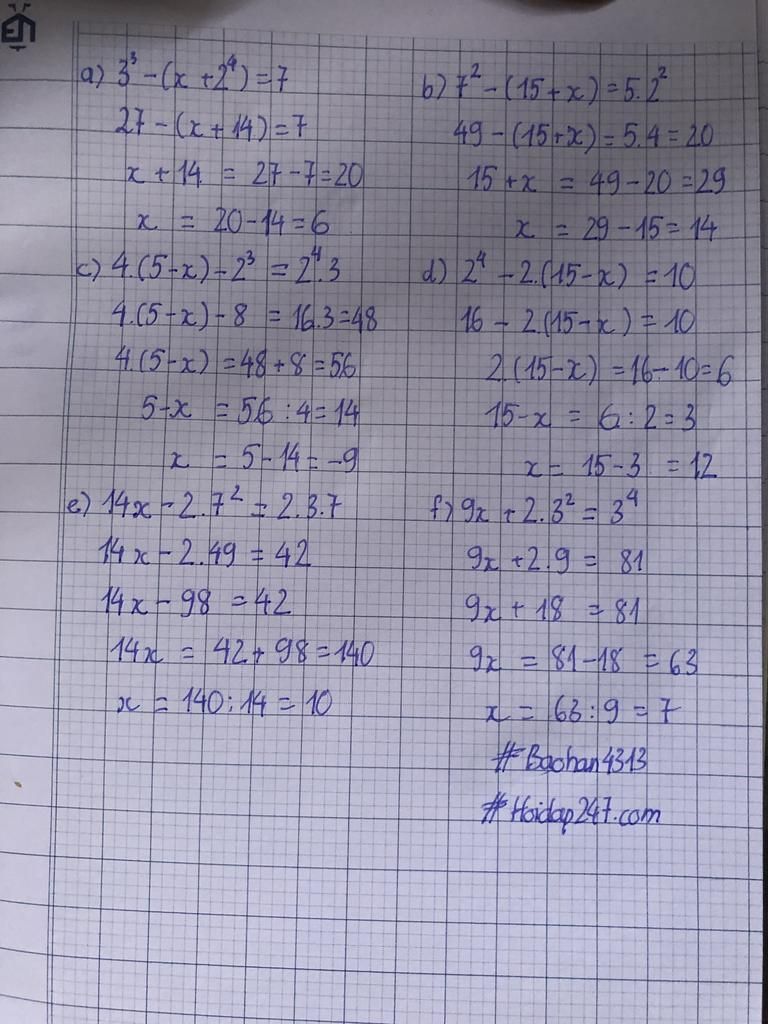 a) 3³ - (x + 2⁴) = 7
27 - (x + 14) = 7
x + 14 = 27 - 7 = 20
x = 20 - 14 = 6
b) 7² - (15 + x) = 5.2²
49 - (15 + x) = 5.4 = 20
15 + x = 49 - 20 = 29
x = 29 - 15 = 14
c) 4.(5 - x) - 2³ = 2⁴.3
4.(5 - x) - 8 = 16.3 = 48
4.(5 - x) = 48 + 8 = 56
5 - x = 56 : 4 = 14
x = 5 - 14 = -9
d) 2⁴ - 2.(15 - x) = 10
16 - 2.(15 - x) = 10
2.(15 - x) = 16 - 10 = 6
15 - x = 6 : 2 = 3
x = 15 - 3 = 12
e) 14x - 2.7² = 2.3.7
14x - 2.49 = 42
14x - 98 = 42
14x = 42 + 98 = 140
x = 140 : 14 = 10
f) 9x + 2.3² = 3⁴
9x + 2.9 = 81
9x + 18 = 81
9x = 81 - 18 = 63
x = 63 : 9 = 7
#Baohan4313
#Hoidap247.com